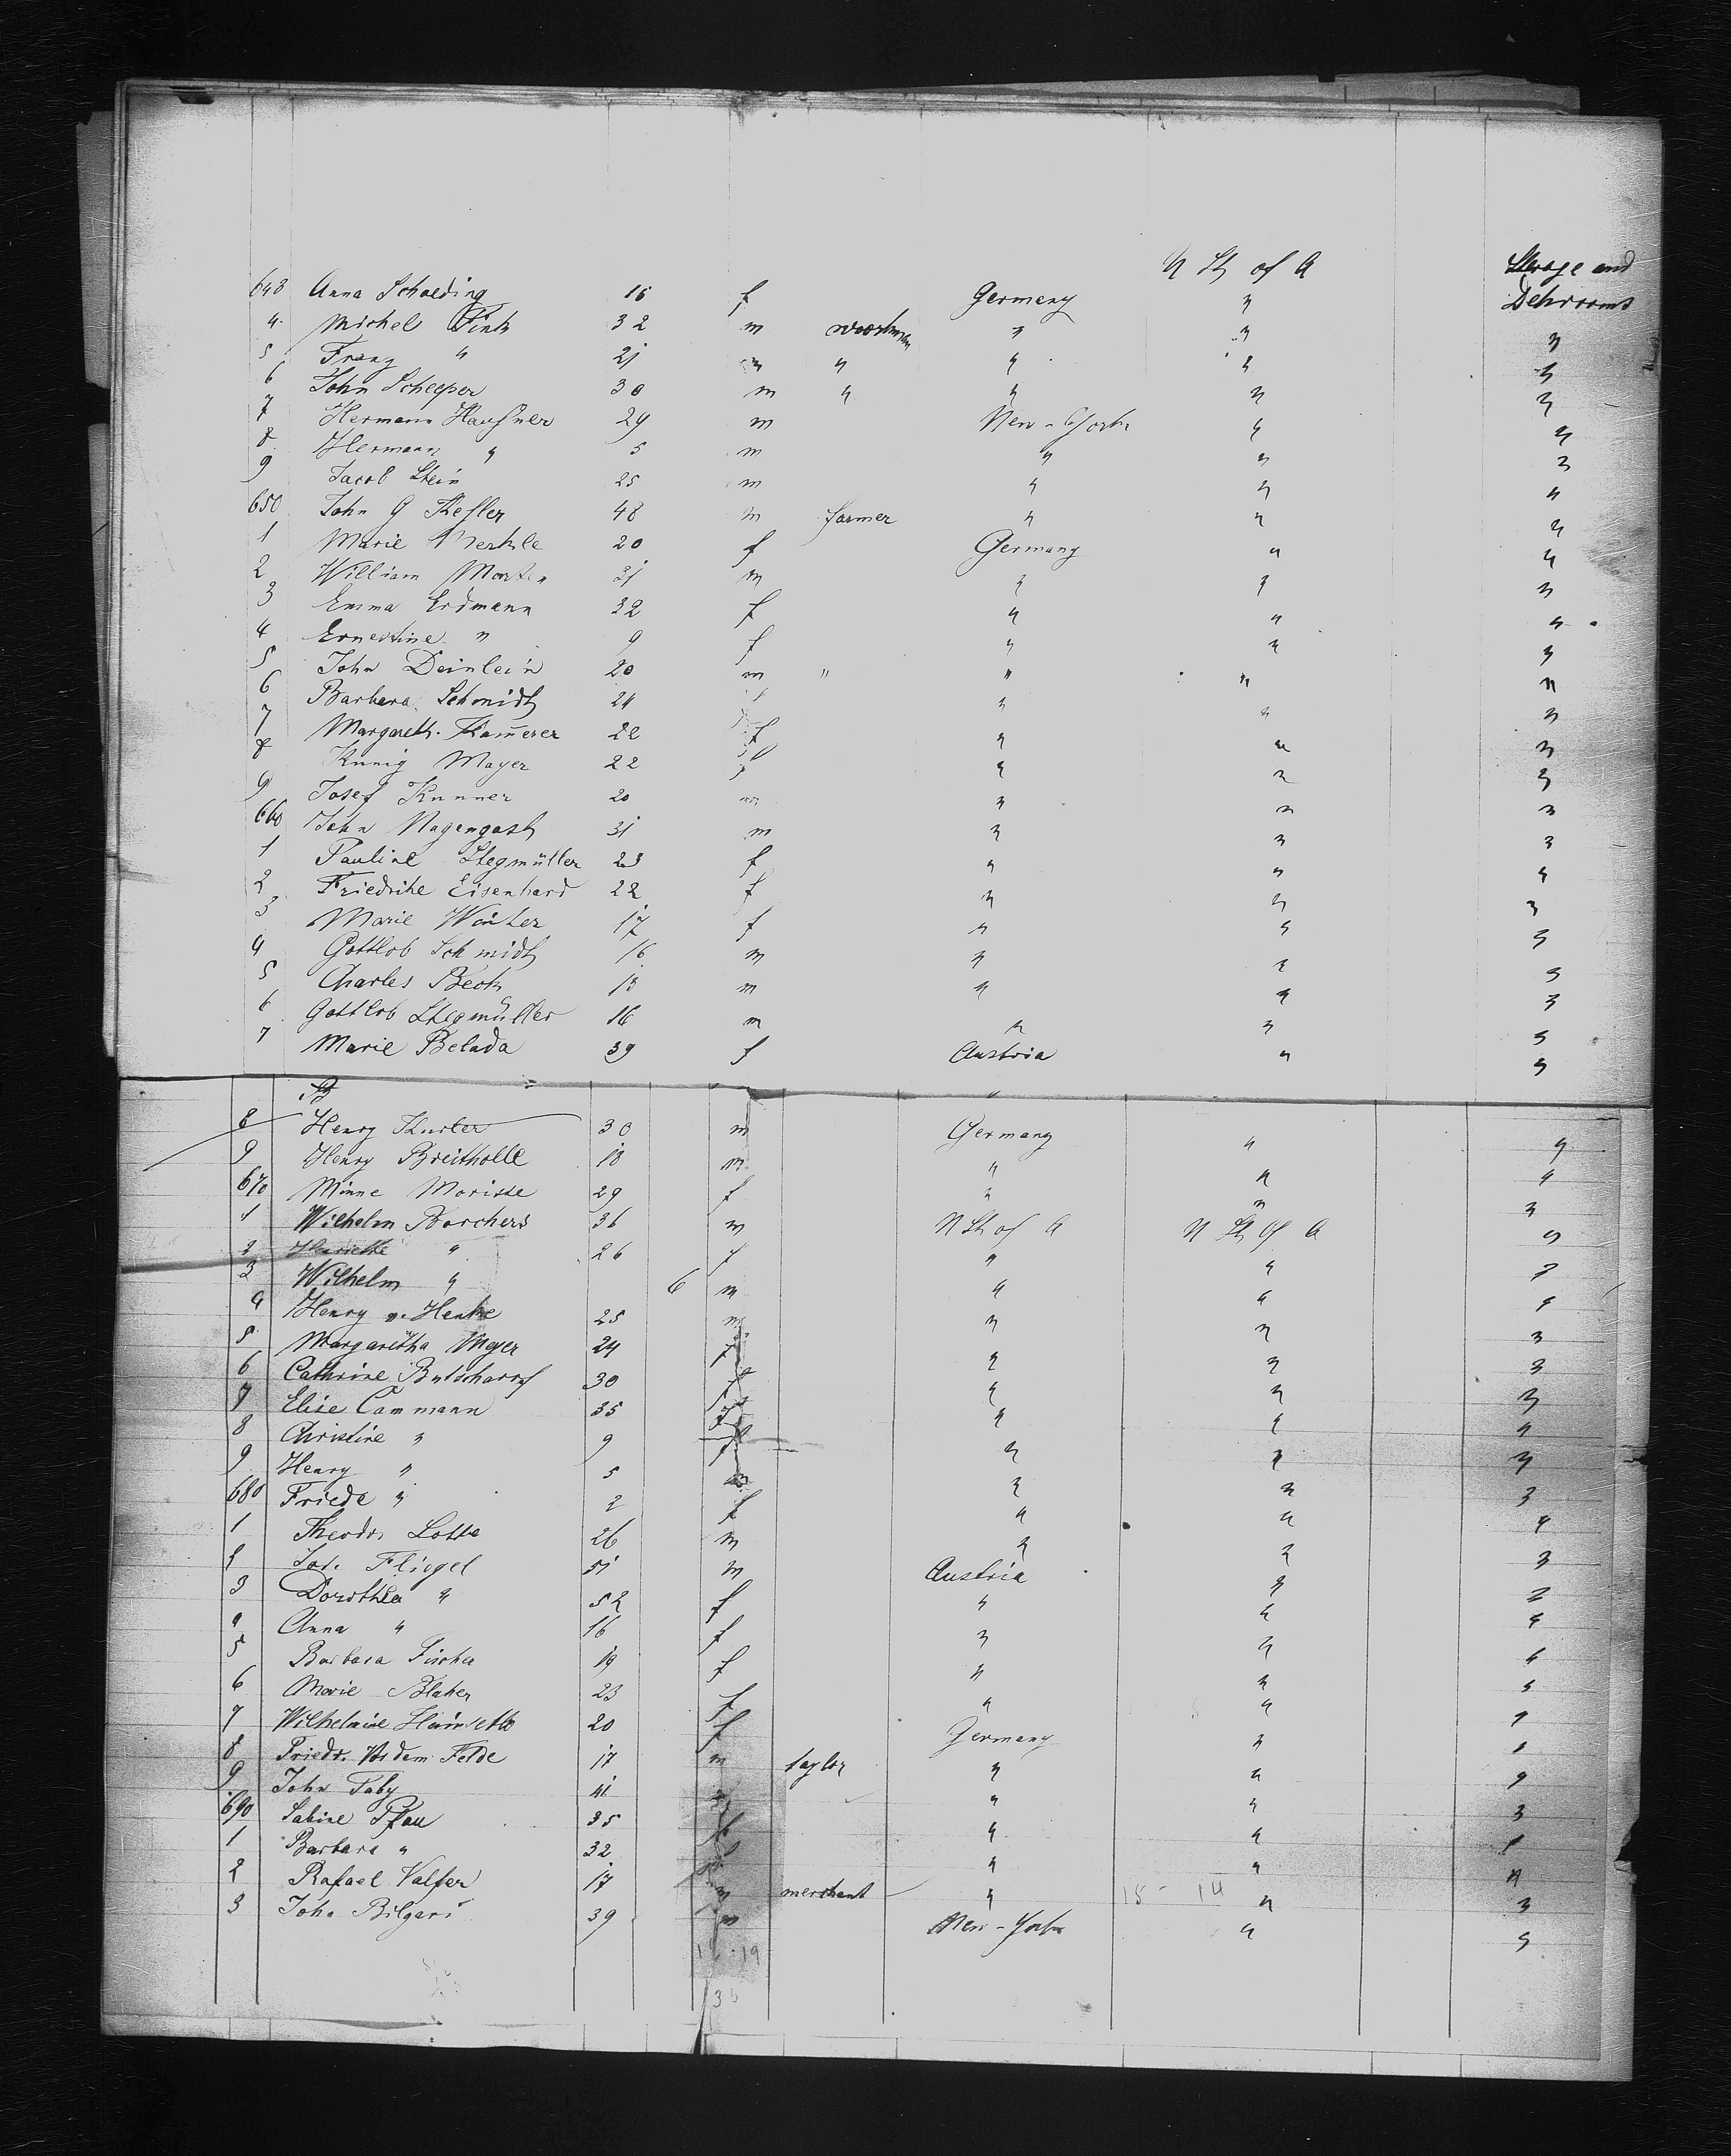 U St of A Sterage and
643 Anna Schoeding 15 f Germany " Dehrooms
4 Michel Fink 32 m workman " " "
5 Franz " 21 m " " " "
6 John Scheeper 30 m " " " "
7 Hermann Haußner 29 m New-York " "
8 Hermann " 5 m " " "
9 Jacob Stein 25 m " " "
650 John G Keßler 48 m farmer " " "
1 Marie Merkle 20 f Germany " "
2 William 31 m " " "
3 Emma Erdmann 32 f " " "
4 Ernestine " 9 f " " "
5 John Deinlein 20 m " " " "
6 Barbara Schmidt 24 " " "
7 Margareth. Kam̄erer 22 f " " "
8 Kunig Mayer 22 f " " "
9 Josef Kunner 20 m " " "
660 John Nagengast 31 m " " "
1 Pauline Stegmüller 23 f " " "
2 Friedrike Eisenhard 22 f " " "
3 Marie Winter 17 f " " "
4 Gottlob Schmidt 16 m " " "
5 Charles Beck 13 m " " "
6 Gottlob Stegmüller 16 m " " "
7 Marie Belada 39 f Austria " "
"
8 Henry Kuster 30 m Germany " "
9 Henry Breitholle 18 m " " "
670 Minne Morisse 29 f " " "
1 Wilhelm Borchers 36 m U St of A U St of A "
2 Henriette " 26 f " " "
3 Wilhelm " 6 m " " "
4 Henry v. Henke 25 m " " "
5 Margaretha Meyer 24 f " " "
6 Cathrine 30 f " " "
7 Elise Cammann 35 f " " "
8 Christine " 9 f " " "
9 Henry " 5 m " " "
680 Friede " 2 f " " "
1 Theodor Lotte 26 m " " "
2 Jos. Fliegel 51 m Austria " "
3 Dorothea " 52 f " " "
4 Anna " 16 f " " "
5 Barbara Fischer 19 f " " "
6 Marie Blaher 23 f " " "
7 Wilhelmine 20 f Germany " "
8 Friedr. Vordem Felde 17 m taylor " " "
9 John Taby 41 m " " "
690 Sabine Pfau 35 f " " "
1 Barbara " 32 f " " "
2 Rafael Valfer 17 m merchant " " "
3 John Bilgari 39 m New-York " "